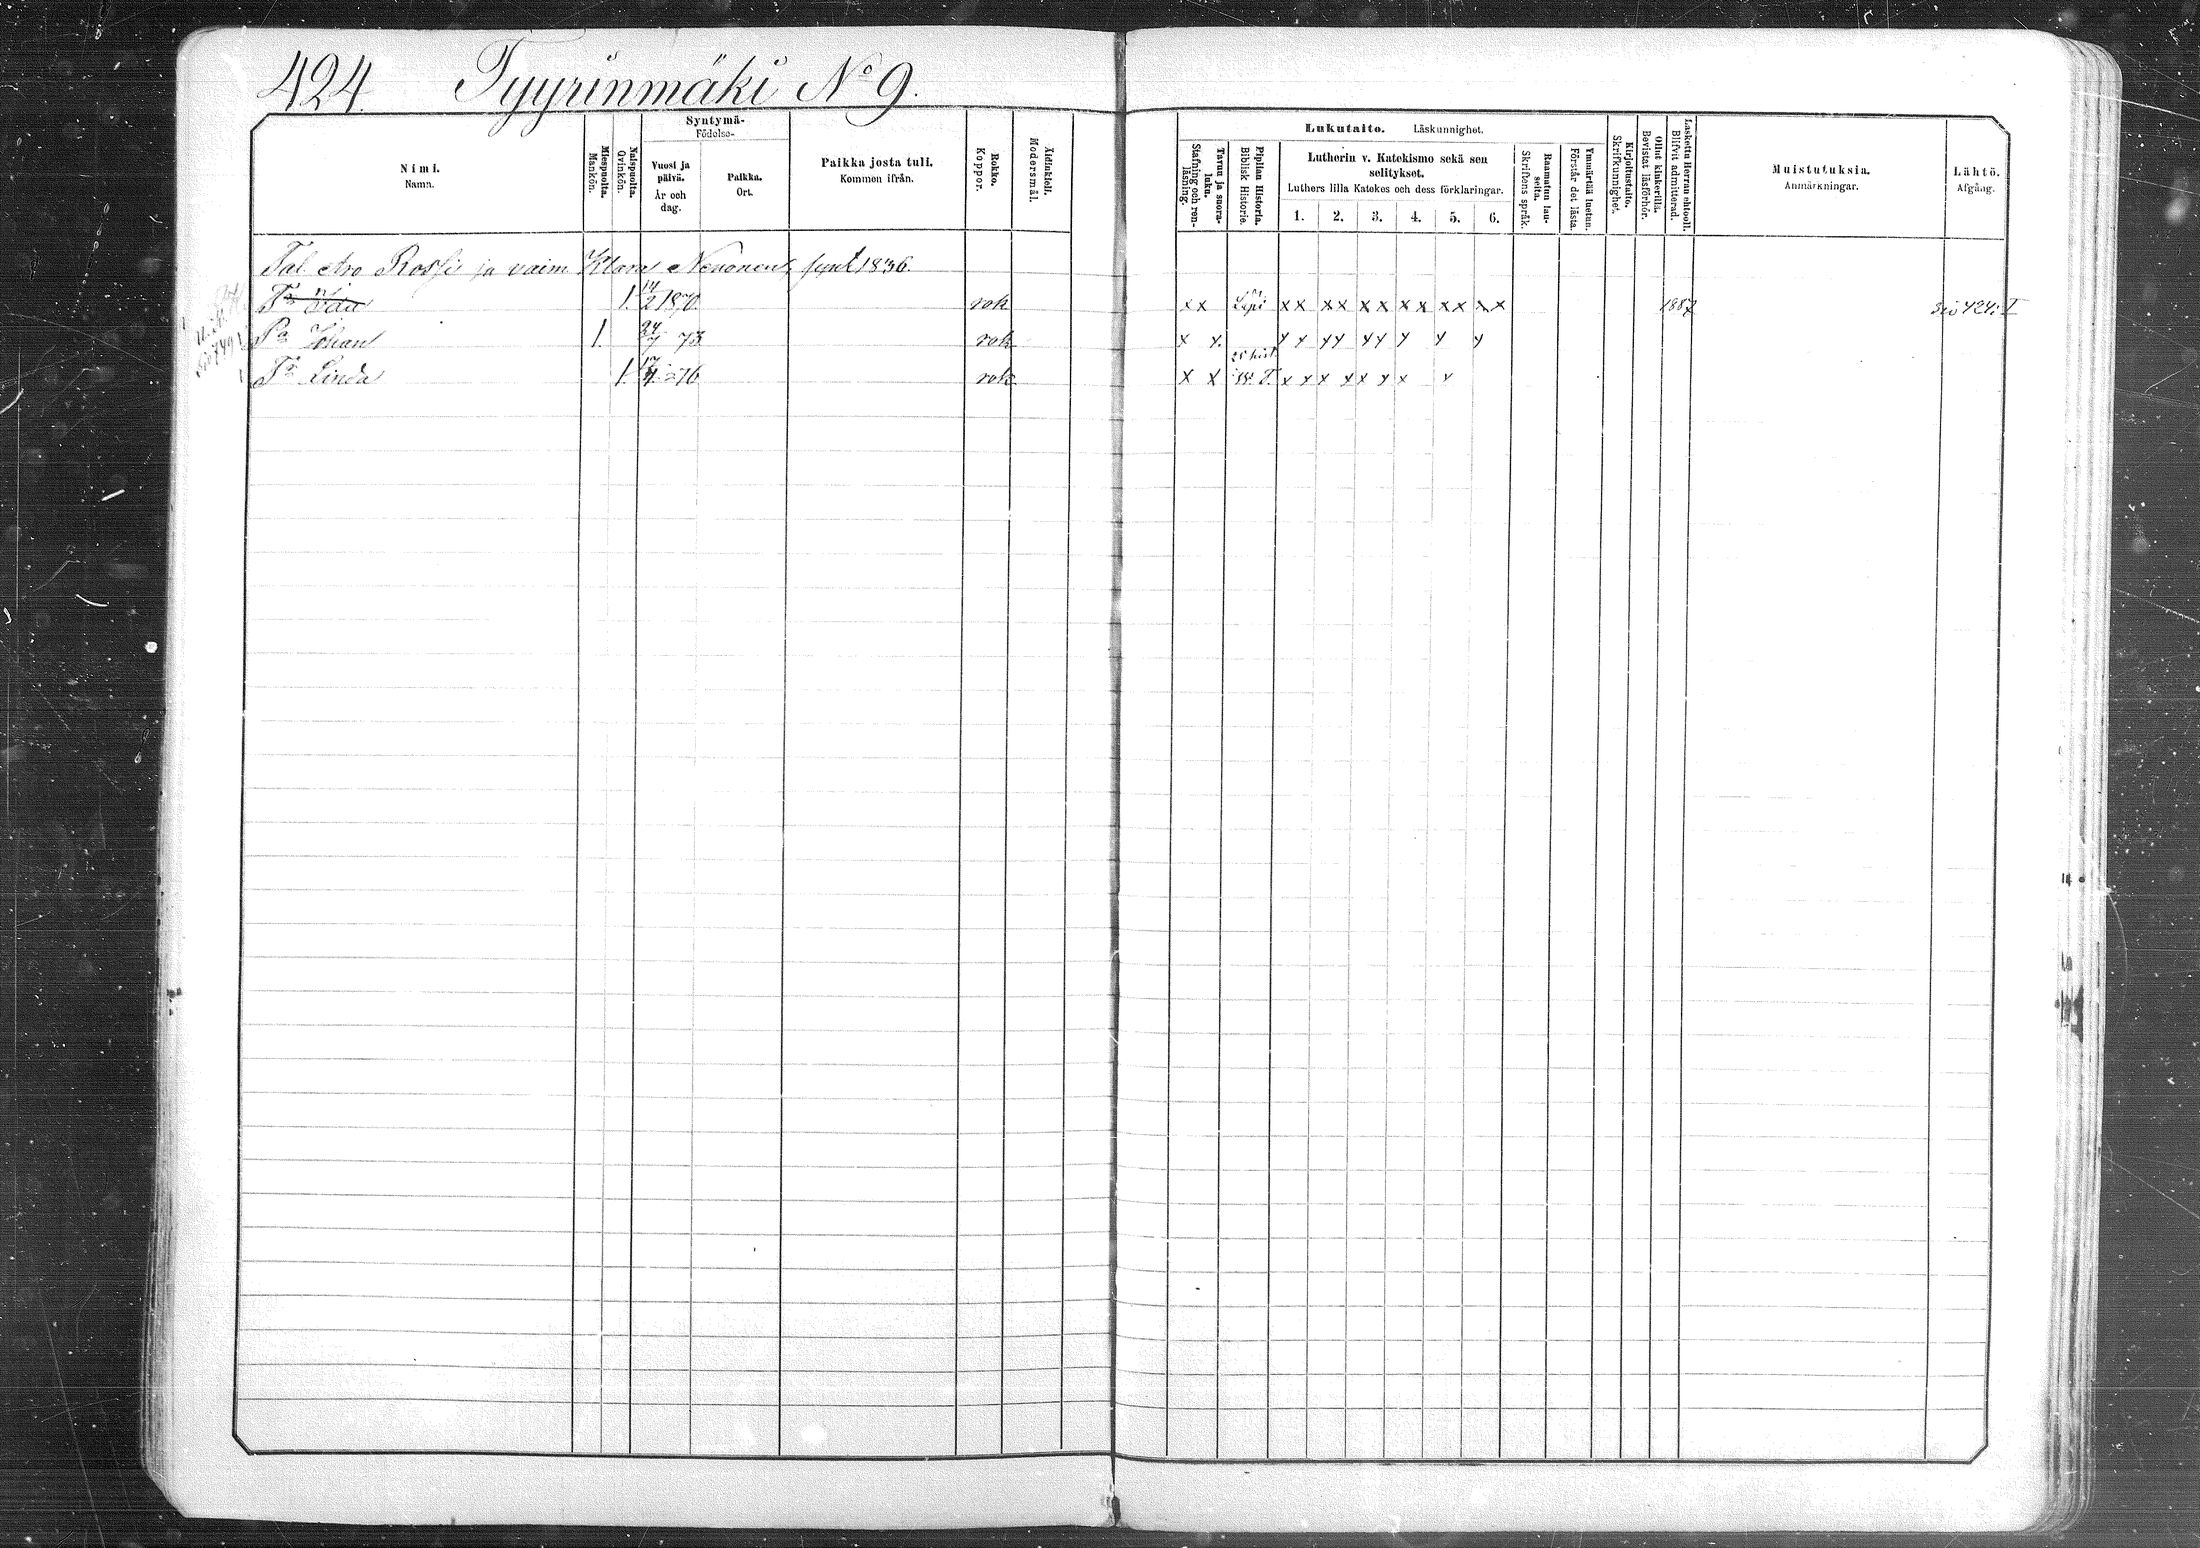 424. Tyyrinmäki No 9.
Nimi.
Namn.
Miespuolta.
Mankön.
Naispuolta.
Qvinkön.
Syntymä-
Födelse-
Vuosi ja päivä.
År och dag.
Paikka.
Ort.
Paikka josta tuli.
Kommen ifrån.
Rokko.
Koppor.
Äidinkieli.
Modersmål.
Lukutaito. Läskunnighet.
Tavuu ja suora-luku.
Stafning och ren-läsning.
Piplian Historia.
Biblisk Historie.
Lutherin v. Katekismo sekä sen selitykset.
Luthers lilla Katekes och dess förklaringar.
1. 2. 3. 4. 5. 6.
Raamatun lau-seita.
Skriftens språk.
Ymmärtää luetun.
Förstår det lästa.
Kirjoitustaito.
Skrifkunnighet.
Ollut kinkerillä.
Bevistat läsförhör.
Laskettu Herran ehtooll.
Blifvit admitterad.
Muistutuksia.
Anmärkningar.
Lähtö.
Afgång.
Tal. Aro Rossi ja vaim Klara Nenonen, synt 1836.
Tr Ida 1. 14/2 1870 rok x x x x x x x x x x x x x x 1887 Siv 424: I
Pa Johan 1. 24/7 73 rok x x. x x x x x x x x x
25 hist
Tr Linda 1. 76 rok x x x x x x x x x x